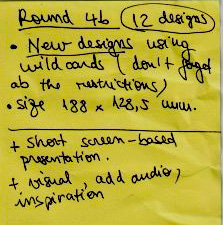 Round 4b 12 designs
• New designs using
wildcards (don't forget
ab the restrictions)
• size 188 x 128,5 mm.
+ short screen-based
presentation.
+ visual, add audio,
inspiration